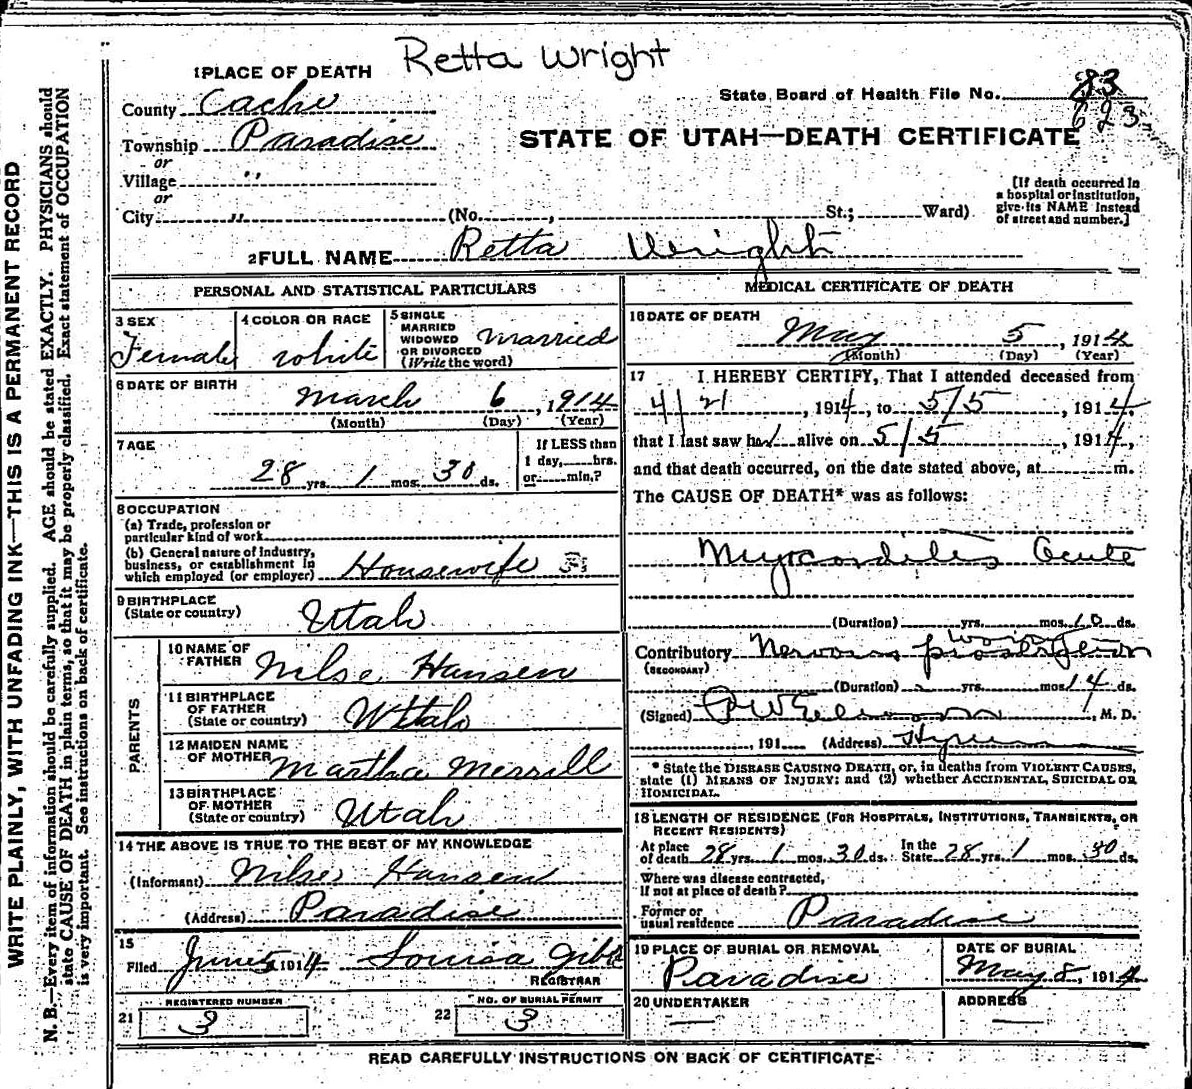 Retta Wright
1 PLACE OF DEATH
County Cache
Township Paradise
or
Village "
or
City "
(No. , St.; Ward)
State Board of Health File No. 83
623
STATE OF UTAH—DEATH CERTIFICATE
[If death occurred in
a hospital or institution,
give its NAME instead
of street and number.]
2 FULL NAME Retta Wright
PERSONAL AND STATISTICAL PARTICULARS
3 SEX
Female
4 COLOR OR RACE
white
5 SINGLE
MARRIED
WIDOWED
OR DIVORCED
(Write the word)
married
6 DATE OF BIRTH
March 6, 1914
(Month) (Day) (Year)
7 AGE
28 yrs. 1 mos. 30 ds.
If LESS than
1 day, hrs.
or min.?
8 OCCUPATION
(a) Trade, profession or
particular kind of work
(b) General nature of industry,
business, or establishment in
which employed (or employer) Housewife
9 BIRTHPLACE
(State or country) Utah
PARENTS
10 NAME OF
FATHER Nilse Hansen
11 BIRTHPLACE
OF FATHER
(State or country) Uttah
12 MAIDEN NAME
OF MOTHER Martha Merrill
13 BIRTHPLACE
OF MOTHER
(State or country) Utah
14 THE ABOVE IS TRUE TO THE BEST OF MY KNOWLEDGE
(Informant) Nilse Hansen
(Address) Paradise
15
Filed June 5 1914 Louisa Gibbs
REGISTRAR
21 REGISTERED NUMBER
3
22 NO. OF BURIAL PERMIT
3
MEDICAL CERTIFICATE OF DEATH
16 DATE OF DEATH
May 5, 1914
(Month) (Day) (Year)
17 I HEREBY CERTIFY, That I attended deceased from
4/21, 1914, to 5/5, 1914,
that I last saw her alive on 5/5, 1914,
and that death occurred, on the date stated above, at m.
The CAUSE OF DEATH* was as follows:
Myocarditis Acute
(Duration) yrs. mos. 10 ds.
Contributory Nervous prostration
(SECONDARY)
(Duration) yrs. mos. 14 ds.
(Signed) M. D.
, 191 (Address) Hyrum
* State the DISEASE CAUSING DEATH, or, in deaths from VIOLENT CAUSES,
state (1) MEANS OF INJURY; and (2) whether ACCIDENTAL, SUICIDAL OR
HOMICIDAL.
18 LENGTH OF RESIDENCE (FOR HOSPITALS, INSTITUTIONS, TRANSIENTS, OR
RECENT RESIDENTS)
At place
of death 28 yrs. 1 mos. 30 ds. In the
State 28 yrs. 1 mos. 30 ds.
Where was disease contracted,
if not at place of death?
Former or
usual residence Paradise
19 PLACE OF BURIAL OR REMOVAL
Paradise
DATE OF BURIAL
May 8, 1914
20 UNDERTAKER
ADDRESS
READ CAREFULLY INSTRUCTIONS ON BACK OF CERTIFICATE
WRITE PLAINLY, WITH UNFADING INK—THIS IS A PERMANENT RECORD
N. B.—Every item of information should be carefully supplied. AGE should be stated EXACTLY. PHYSICIANS should
state CAUSE OF DEATH in plain terms, so that it may be properly classified. Exact statement of OCCUPATION
is very important. See instructions on back of certificate.